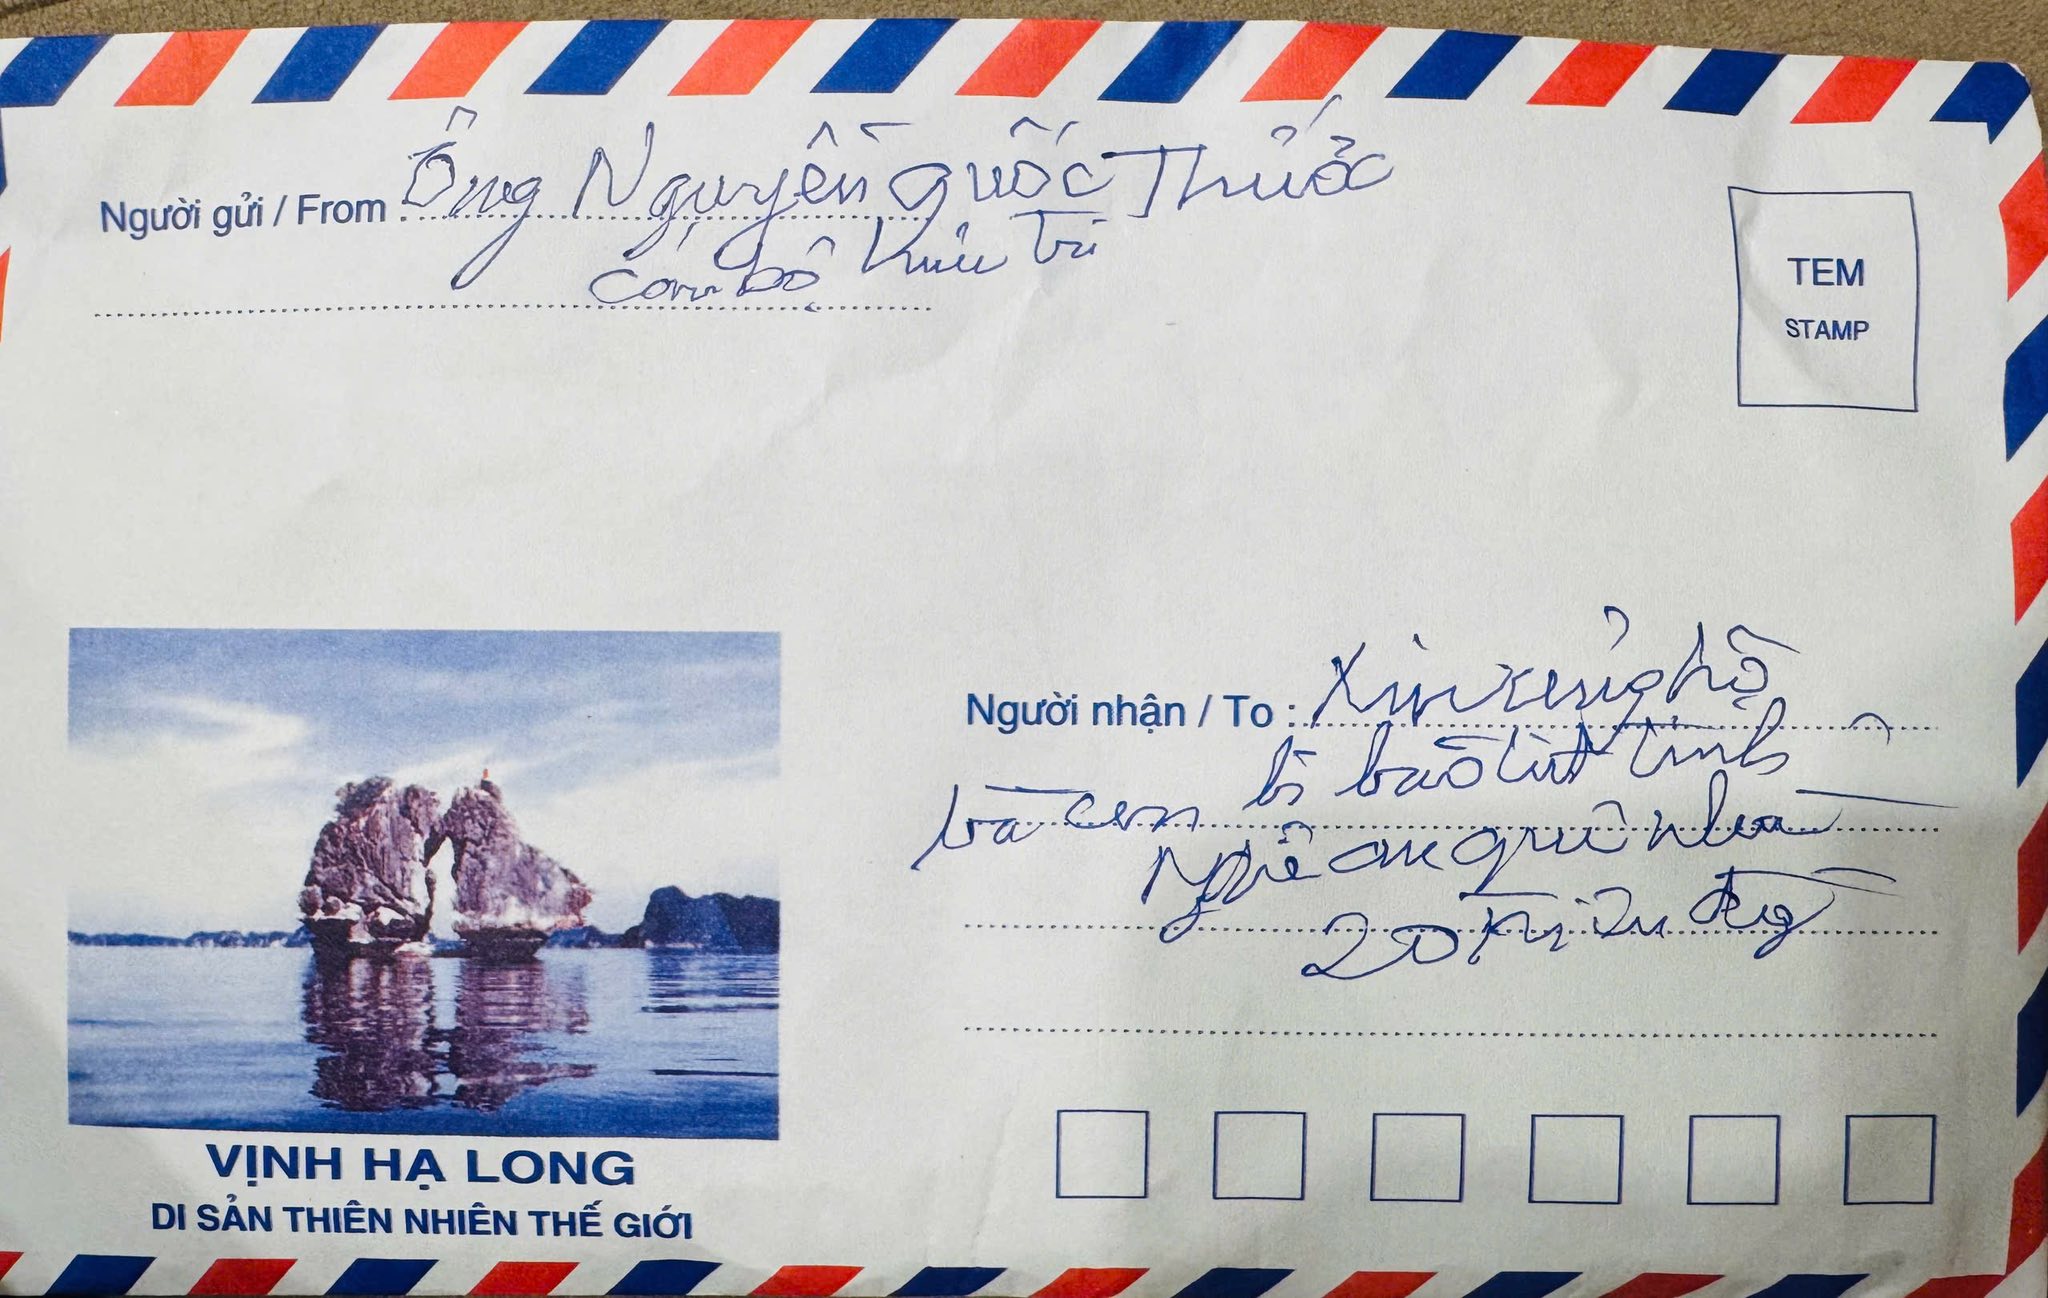 Người gửi / From : Ông Nguyễn Quốc Thước
Cán bộ hưu trí
TEM
STAMP
Người nhận / To : Xin ủng hộ
bà con bị bão lũ tỉnh
Nghệ an quê nhà
20 triệu đồng
VỊNH HẠ LONG
DI SẢN THIÊN NHIÊN THẾ GIỚI